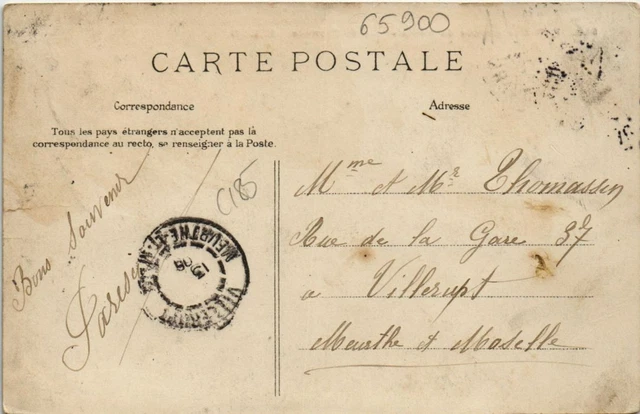 65900
CARTE POSTALE
Correspondance
Adresse
Tous les pays étrangers n'acceptent pas la
correspondance au recto, se renseigner à la Poste.
C185
Bons Souvenir
Mme et Mr Thomassin
Rue de la Gare 37
a Villerupt
Meurthe & Moselle
VILLERUPT
MEURTHE-ET-MLLE